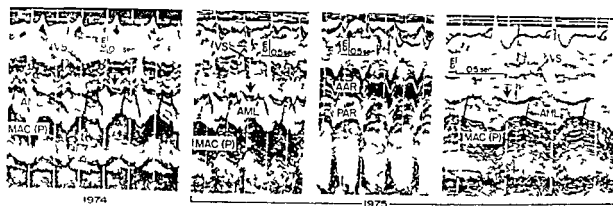 IVS
0.5 sec
AML
MAC (P)
1974
IVS
0.5 sec
AML
MAC (P)
0.5 sec
AAR
PAR
IVS
0.5 sec
AML
MAC (P)
1975